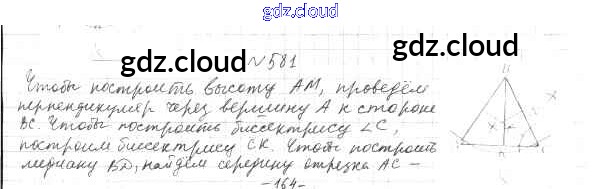 gdz.cloud
gdz.cloud
gdz.cloud
№581
Чтобы построить высоту AM, проведём
перпендикуляр через вершину A к стороне
BC. Чтобы построить биссектрису ∠C,
построим биссектрису CK. Чтобы построить
медиану BD, найдём середину отрезка AC –
-164-